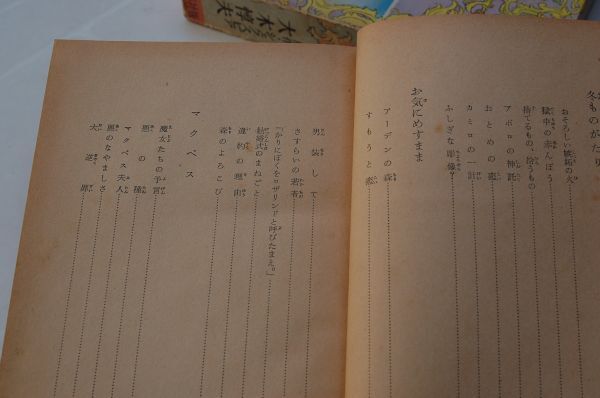 大木惇夫
冬ものがたり
おそろしい嫉妬の火
獄中の赤んぼう
捨てるもの、拾うもの
アポロの神託
おとめの恋
カミロの一計
ふしぎな彫像
お気にめすまま
アーデンの森
すもうと恋
男装して
さすらいの若者
「かりにぼくをロザリンドと呼びたまえ。」
結婚式のまねごと
違約の理由
森のよろこび
マクベス
魔女たちの予言
悪の種
マクベス夫人
悪のなやましさ
大逆罪